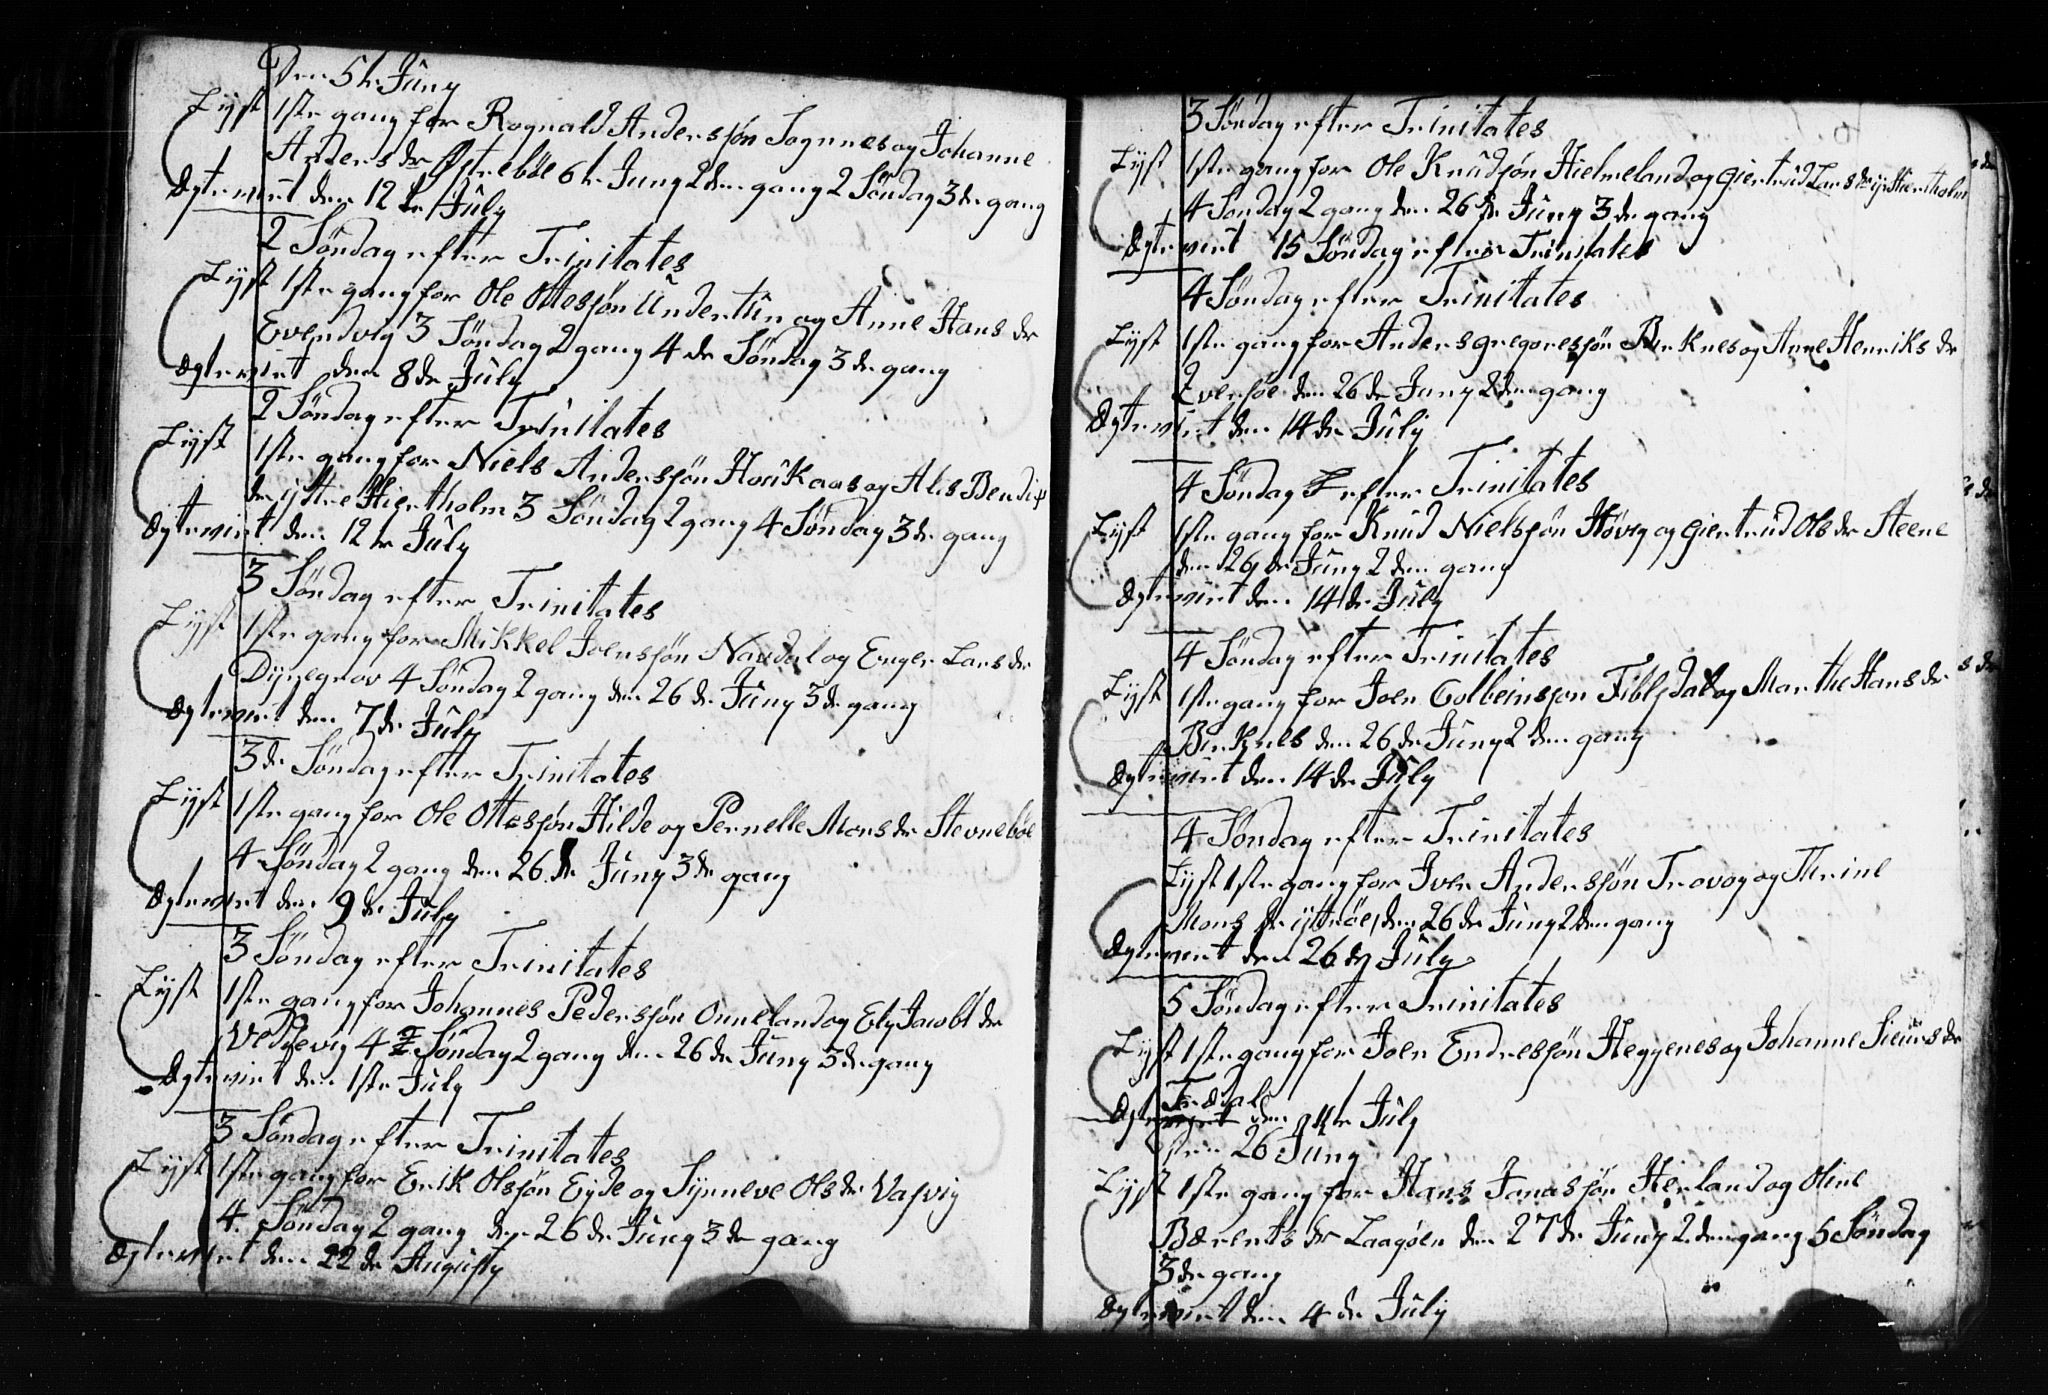 Den 5te Juny
Lyst 1ste gang for Rognald Andersjøn Sognnes og Johanne
Anders dr Østrebøe 6te Juny 2den gang 2 Søndag 3de gang
Ægteviet den 12te July
2 Søndag efter Trinitates
Lyst 1ste gang for Ole Ottesjøn Undertun og Anne Hans dr
Evendvig 3 Søndag 2 gang 4de Søndag 3de gang
Ægteviet den 8de July
2 Søndag efter Trinitates
Lyst 1ste gang for Niels Andersjøn Hovikaas og Alis Bendix
dr yttre Hiertholm 3 Søndag 2 gang 4 Søndag 3de gang
Ægteviet den 12te July
3 Søndag efter Trinitates
Lyst 1ste gang for Mikkel Joensjøn Naudal og Enger Lars dr
Dyregrov 4 Søndag 2 gang den 26de Juny 3de gang
Ægteviet den 7de July
3de Søndag efter Trinitates
Lyst 1ste gang for Ole Ottesjøn Hilde og Pernelle Mons dr Stevnebøe
4 Søndag 2 gang den 26de Juny 3de gang
Ægteviet den 9de July
3 Søndag efter Trinitates
Lyst 1ste gang for Johannes Pedersjøn Onneland og Ely Jacobs dr
Vedvevig 4 Søndag 2 gang den 26de Juny 3de gang
Ægteviet den 1ste July
3 Søndag efter Trinitates
Lyst 1ste gang for Erik Olsjøn Eyde og Synneve Ols dr Vasvig
4 Søndag 2 gang den 26de Juny 3de gang
Ægteviet den 22de Augusty
3 Søndag efter Trinitates
Lyst 1ste gang for Ole Knudsjøn Hielmeland og Giertrud Lars dr y Hiertholm
4 Søndag 2 gang den 26de Juny 3de gang
Ægteviet 15 Søndag efter Trinitates
4 Søndag efter Trinitates
Lyst 1ste gang for Anders Gregoresjøn Birknes og Anne Henriks dr
Eversøe den 26de Juny 2den gang
Ægteviet den 14de July
4 Søndag efter Trinitates
Lyst 1ste gang for Knud Nielssjøn Høvig og Giertrud Ols dr Steene
den 26de Juny 2den gang
Ægteviet den 14de July
4 Søndag efter Trinitates
Lyst 1ste gang for Joen Colbeinsjon Tiblsdal og Marthe Hans dr
Birknes den 26de Juny 2den gang
Ægteviet den 14de July
4 Søndag efter Trinitates
Lyst 1ste gang for Iver Andersjøn Trovog og Therine
Mons dr yttrøe den 26de Juny 2den gang
Ægteviet den 26de July
5 Søndag efter Trinitates
Lyst 1ste gang for Joen Endresjøn Heggenes og Johanne Siurs dr
Trædal
Ægteviet den 4de July
den 26 Juny
Lyst 1ste gang for Hans Jonasjøn Herland og Oline
Bærents dr Laagøen den 27de Juny 2den gang 5 Søndag
3de gang
Ægteviet den 4de July